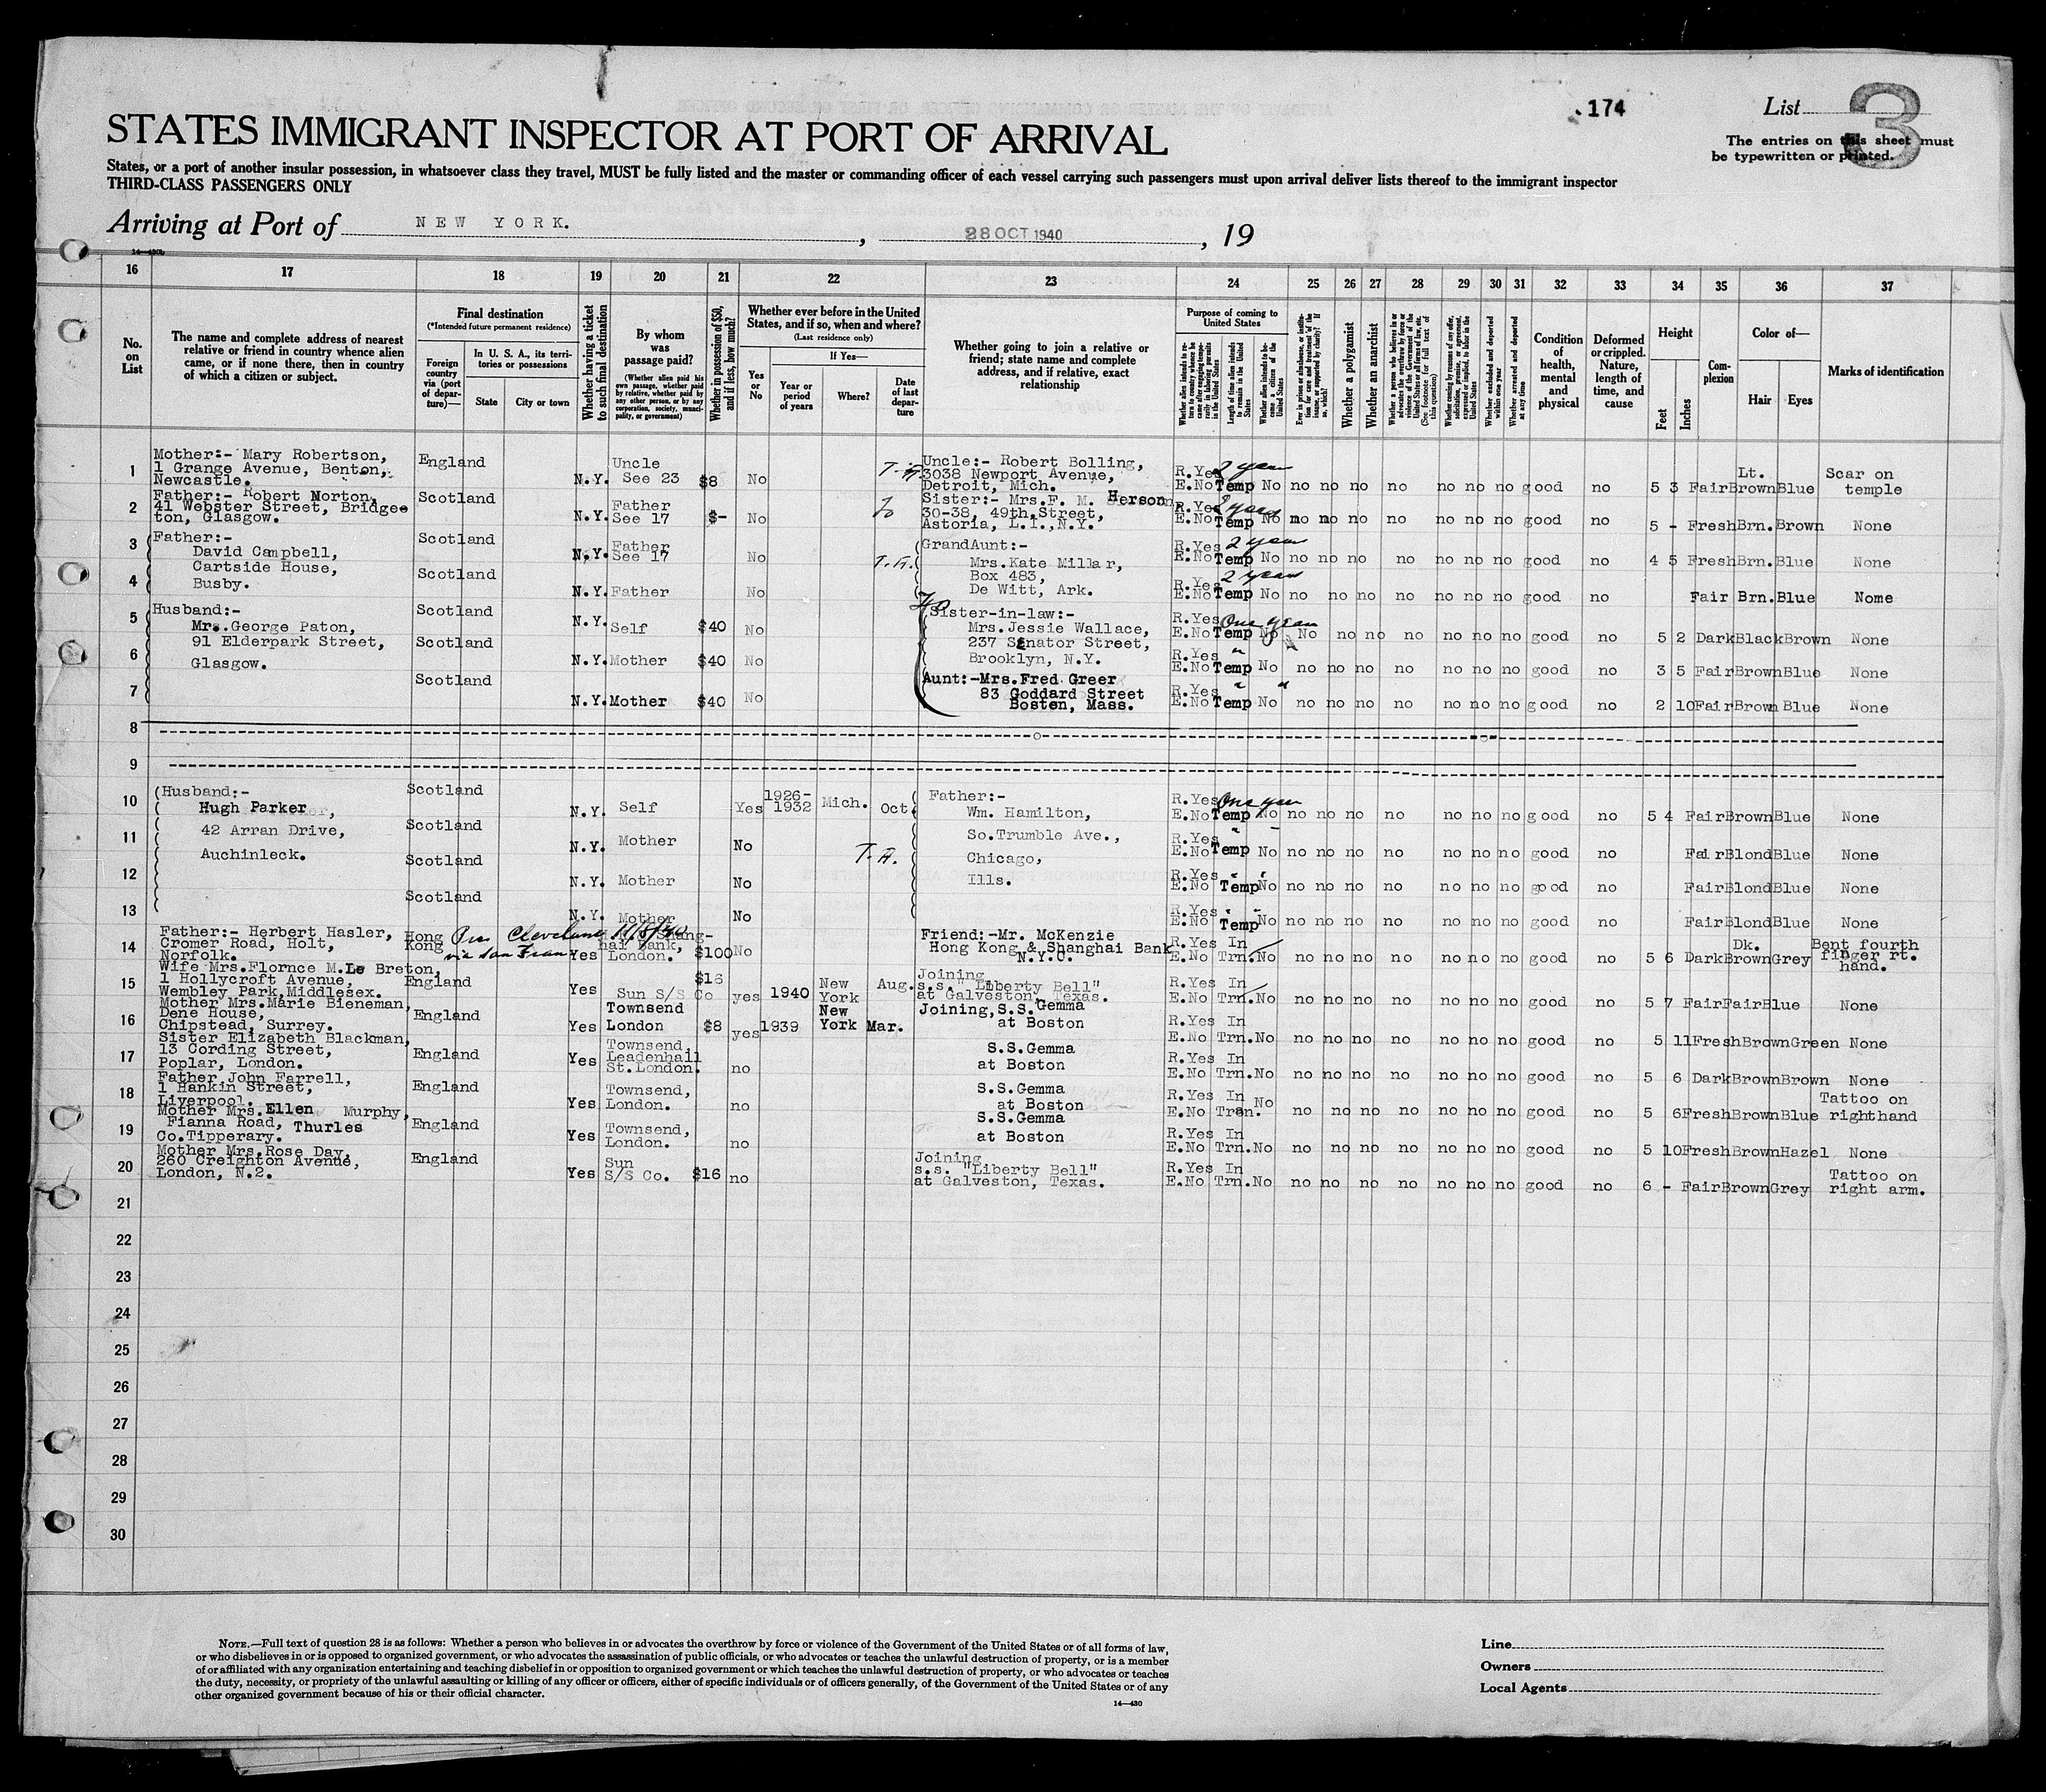 .174
List 3
STATES IMMIGRANT INSPECTOR AT PORT OF ARRIVAL
The entries on this sheet must
be typewritten or printed.
States, or a port of another insular possession, in whatsoever class they travel, MUST be fully listed and the master or commanding officer of each vessel carrying such passengers must upon arrival deliver lists thereof to the immigrant inspector
THIRD-CLASS PASSENGERS ONLY
Arriving at Port of NEW YORK. , 28 OCT 1940 , 19
16 17 18 19 20 21 22 23 24 25 26 27 28 29 30 31 32 33 34 35 36 37
No. on List
The name and complete address of nearest
relative or friend in country whence alien
came, or if none there, then in country
of which a citizen or subject.
Final destination
(*Intended future permanent residence)
Foreign country via (port of departure)—
In U. S. A., its territories or possessions
State
City or town
Whether having a ticket to such final destination
By whom was passage paid?
(Whether alien paid his own passage, whether paid by relative, whether paid by any other person, or by any corporation, society, municipality, or government)
Whether in possession of $50, and if less, how much?
Whether ever before in the United
States, and if so, when and where?
(Last residence only)
If Yes—
Yes or No
Year or period of years
Where?
Date of last departure
Whether going to join a relative or
friend; state name and complete
address, and if relative, exact
relationship
Purpose of coming to United States
Length of time alien intends to remain in the United States
Whether alien intends to become a citizen of the United States
Whether a polygamist
Whether an anarchist
Whether excluded and deported within one year
Whether arrested and deported at any time
Condition of health, mental and physical
Deformed or crippled. Nature, length of time, and cause
Height
Feet
Inches
Complexion
Color of—
Hair
Eyes
Marks of identification
1 Mother:- Mary Robertson,
1 Grange Avenue, Benton,
Newcastle.
England N.Y. Uncle See 23 $8 No T.A.
Uncle:- Robert Bolling,
3038 Newport Avenue,
Detroit, Mich.
R.Yes 2 years
E.No Temp No no no no no no no no good no 5 3 Fair Lt. Brown Blue Scar on temple
2 Father:- Robert Morton,
41 Webster Street, Bridge
ton, Glasgow.
Scotland N.Y. Father See 17 $- No
Sister:- Mrs.F. M. Herson
30-38, 49th,Street,
Astoria, L.I.,N.Y.
R.Yes 2 years
E.No Temp No no no no no no no no good no 5 - Fresh Brn. Brown None
3 Father:-
David Campbell,
Cartside House,
Busby.
Scotland N.Y. Father See 17 No T.A.
GrandAunt:-
Mrs.Kate Millar,
Box 483,
De Witt, Ark.
R.Yes 2 years
E.No Temp No no no no no no no no good no 4 5 Fresh Brn. Blue None
4 Scotland N.Y. Father No
R.Yes 2 years
E.No Temp No no no no no no no no good no Fair Brn. Blue Nome
5 Husband:-
Mr. George Paton,
91 Elderpark Street,
Glasgow.
Scotland N.Y. Self $40 No
Sister-in-law:-
Mrs.Jessie Wallace,
237 Senator Street,
Brooklyn, N.Y.
R.Yes One year
E.No Temp No No no no no no no no good no 5 2 Dark Black Brown None
6 Scotland N.Y. Mother $40 No
R.Yes "
E.No Temp No no no no no no no no good no 3 5 Fair Brown Blue None
7 Scotland N.Y. Mother $40 No
Aunt:-Mrs.Fred Greer
83 Goddard Street
Boston, Mass.
R.Yes " "
E.No Temp No no no no no no no no good no 2 10 Fair Brown Blue None
8
9
10 Husband:-
Hugh Parker
42 Arran Drive,
Auchinleck.
Scotland N.Y. Self Yes 1926-1932 Mich. Oct
Father:-
Wm. Hamilton,
So.Trumble Ave.,
Chicago,
Ills.
R.Yes One year
E.No Temp No no no no no no no no good no 5 4 Fair Brown Blue None
11 Scotland N.Y. Mother No T.A.
R.Yes "
E.No Temp No no no no no no no no good no Fair Blond Blue None
12 Scotland N.Y. Mother No
R.Yes "
E.No Temp No no no no no no no no good no Fair Blond Blue None
13 Scotland N.Y. Mother No
R.Yes "
E.No Temp No no no no no no no no good no Fair Blond Blue None
14 Father:- Herbert Hasler,
Cromer Road, Holt,
Norfolk.
Hong Kong Pres Cleveland 11/8/40 via San Fran Yes hai Bank, London. $100 No
Friend:-Mr. McKenzie
Hong Kong & Shanghai Bank
N.Y.C.
R.Yes In
E.No Trn. No no no no no no no no good no 5 6 Dark Dk. Brown Grey Bent fourth finger rt. hand.
15 Wife Mrs.Flornce M.Le Breton,
1 Hollycroft Avenue,
Wembley Park,Middlesex.
England Yes Sun S/S Co $16 yes 1940 New York Aug.
Joining
s.s. "Liberty Bell"
at Galveston, Texas.
R.Yes In
E.No Trn. No no no no no no no no good no 5 7 Fair Fair Blue None
16 Mother Mrs.Marie Bieneman,
Dene House,
Chipstead, Surrey.
England Yes Townsend London $8 yes 1939 New York Mar.
Joining,S.S.Gemma
at Boston
R.Yes In
E.No Trn. No no no no no no no no good no 5 11 Fresh Brown Green None
17 Sister Elizabeth Blackman,
13 Cording Street,
Poplar, London.
England Yes Townsend Leadenhall St.London. no
S.S.Gemma
at Boston
R.Yes In
E.No Trn. No no no no no no no no good no 5 6 Dark Brown Brown None
18 Father John Farrell,
1 Hankin Street,
Liverpool.
England Yes Townsend, London. no
S.S.Gemma
at Boston
R.Yes In
E.No Tran. No no no no no no no no good no 5 6 Fresh Brown Blue Tattoo on righthand
19 Mother Mrs.Ellen Murphy,
Fianna Road, Thurles
Co.Tipperary.
England Yes Townsend, London. no
S.S.Gemma
at Boston
R.Yes In
E.No Trn. No no no no no no no no good no 5 10 Fresh Brown Hazel None
20 Mother Mrs.Rose Day,
260 Creighton Avenue,
London, N.2.
England Yes Sun S/S Co. $16 no
Joining
s.s. "Liberty Bell"
at Galveston, Texas.
R.Yes In
E.No Trn. No no no no no no no no good no 6 - Fair Brown Grey Tattoo on right arm.
21
22
23
24
25
26
27
28
29
30
NOTE.—Full text of question 28 is as follows: Whether a person who believes in or advocates the overthrow by force or violence of the Government of the United States or of all forms of law,
or who disbelieves in or is opposed to organized government, or who advocates the assassination of public officials, or who advocates or teaches the unlawful destruction of property, or is a member
of or affiliated with any organization entertaining and teaching disbelief in or opposition to organized government or which teaches the unlawful destruction of property, or who advocates or teaches
the duty, necessity, or propriety of the unlawful assaulting or killing of any officer or officers, either of specific individuals or of officers generally, of the Government of the United States or of any
other organized government because of his or their official character.
14—430
Line
Owners
Local Agents